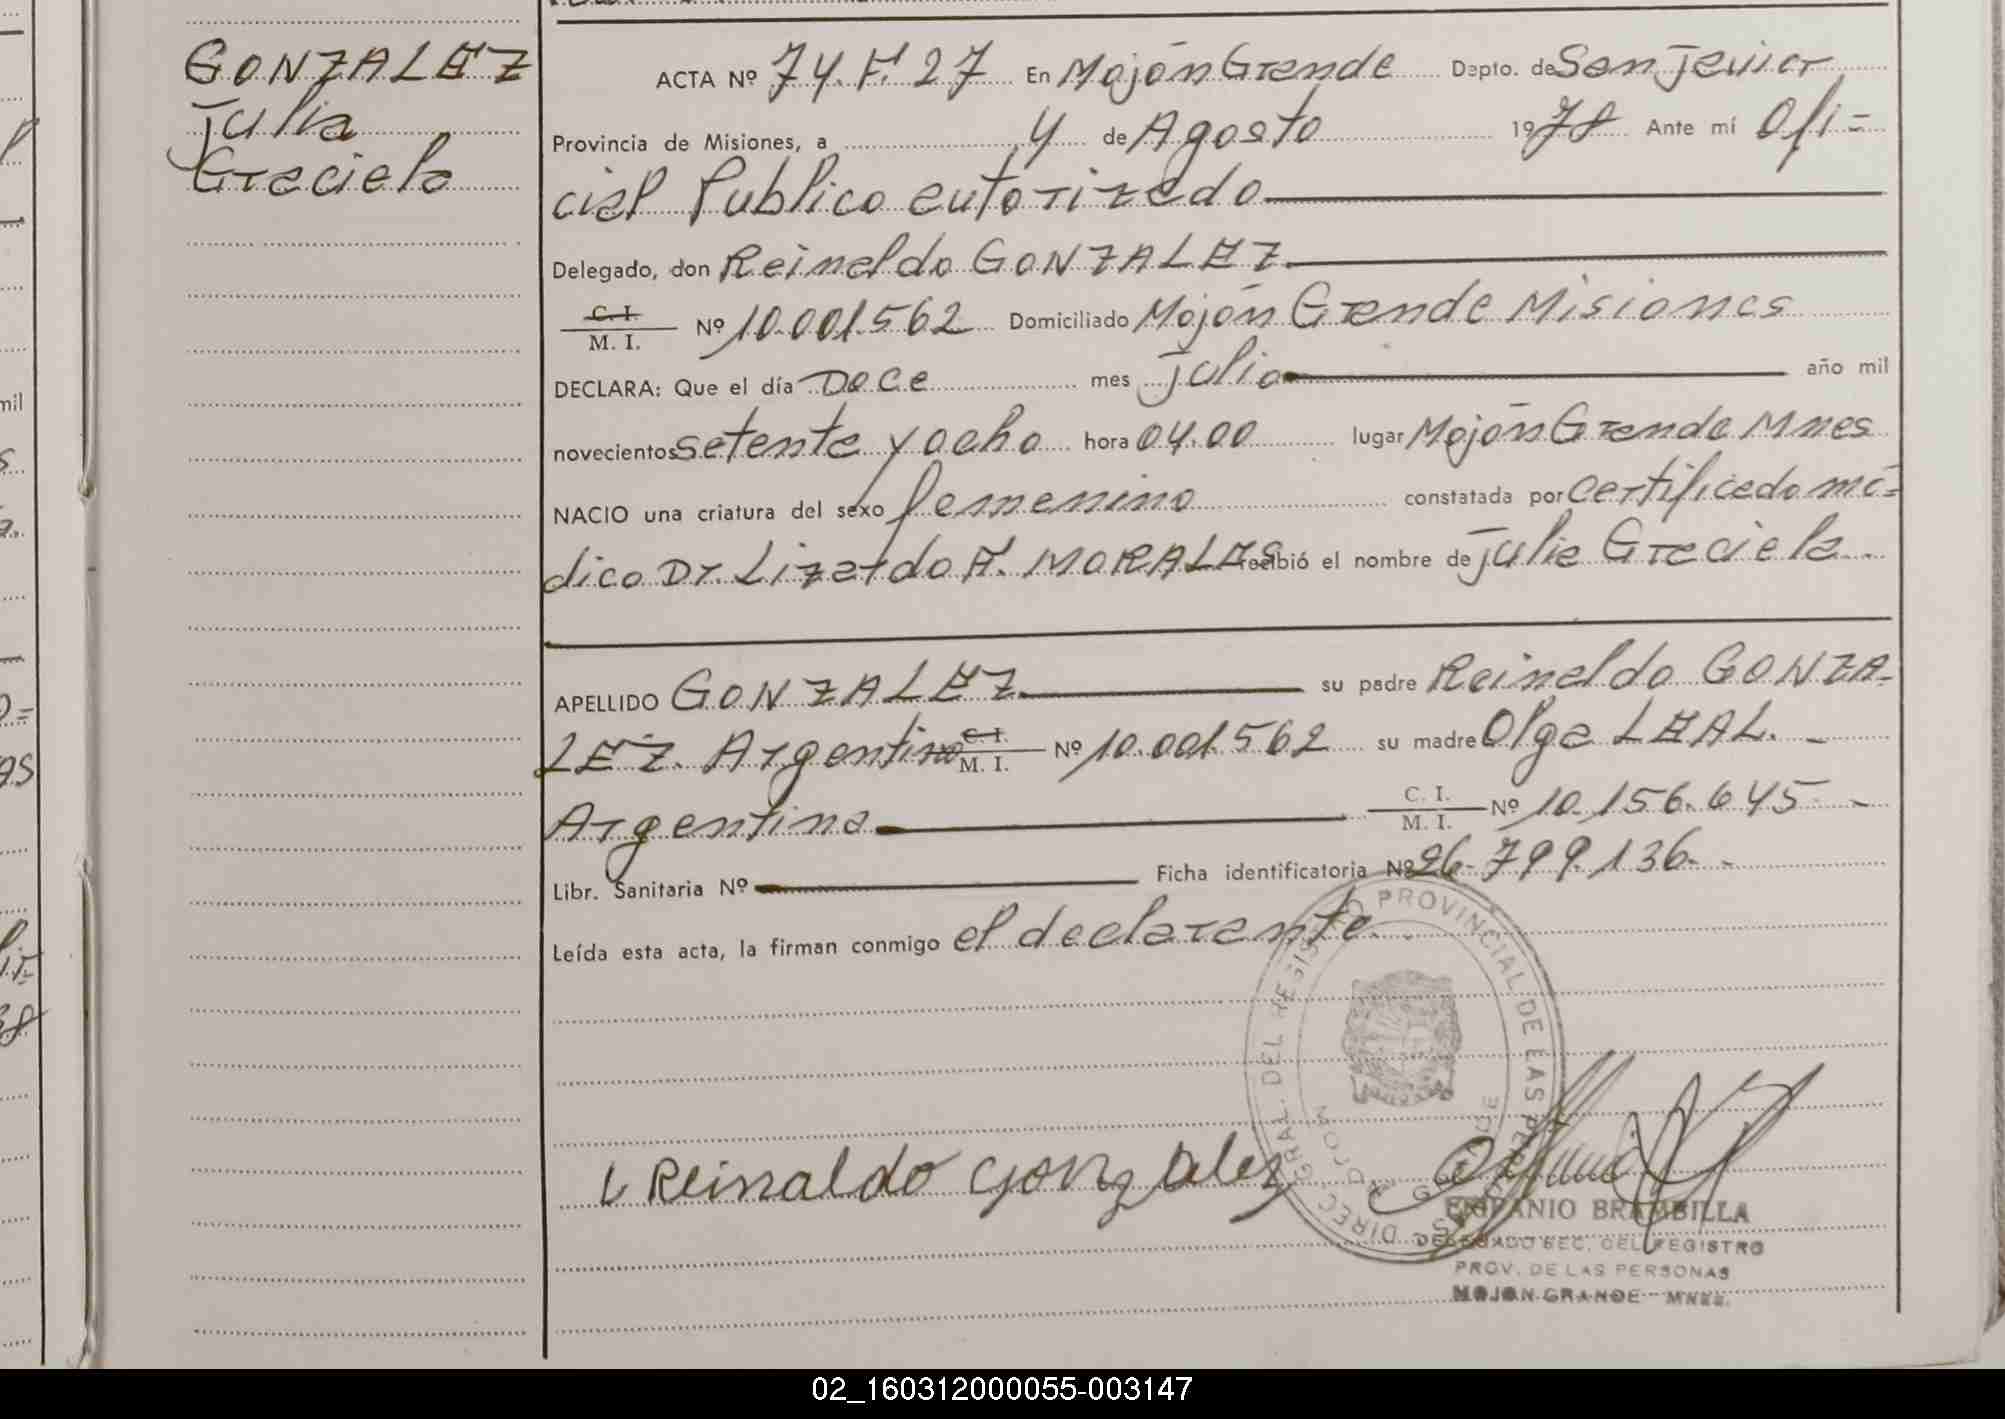 GONZALEZ
Julia
Graciela
ACTA Nº 74.F. 27 En Mojón Grande Depto. de San Javier
Provincia de Misiones, a 4 de Agosto 1978 Ante mí Ofi=
cial Publico autorizado
Delegado, don Reinaldo GONZALEZ
C. I.
M. I. Nº 10.001.562 Domiciliado Mojón Grande Misiones
DECLARA: Que el día Doce mes Julio año mil
novecientos setenta y ocho hora 04.00 lugar Mojón Grande Mnes
NACIO una criatura del sexo femenino constatada por certificado mé=
dico Dr. Lizardo F. MORALES recibió el nombre de Julia Graciela.
APELLIDO GONZALEZ su padre Reinaldo GONZA-
LEZ. Argentino C. I. M. I. Nº 10.001.562 su madre Olga LEAL. -
Argentina C. I. M. I. Nº 10.156.645 -
Libr. Sanitaria Nº Ficha identificatoria Nº 26.799.136. -
Leída esta acta, la firman conmigo el declarante.
DIREC. GRAL. DEL REGISTRO PROVINCIAL DE LAS PERSONAS
Reinaldo Gonzalez
EMIPANIO BRAMBILLA
DELEGADO SEC. DEL REGISTRO
PROV. DE LAS PERSONAS
MOJON GRANDE - MNES.
02_160312000055-003147